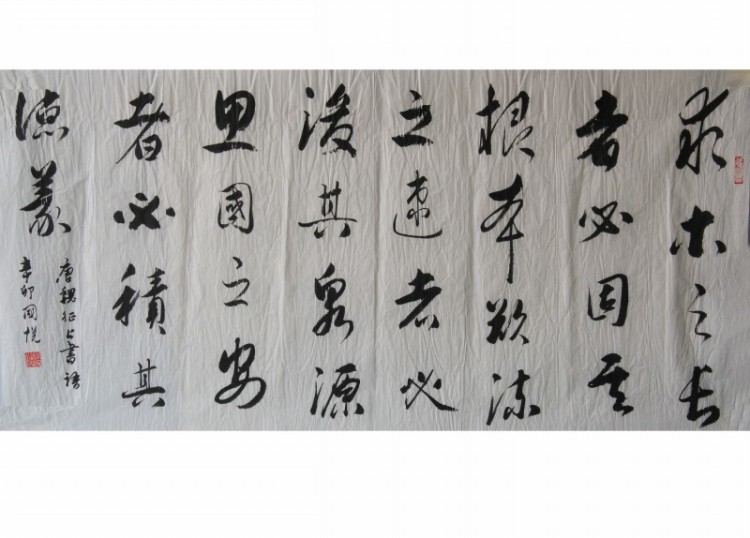 求木之长
者必固其
根本欲流
之遠者必
浚其泉源
思國之安
者必積其
德義
唐魏征上書语
辛卯国悦